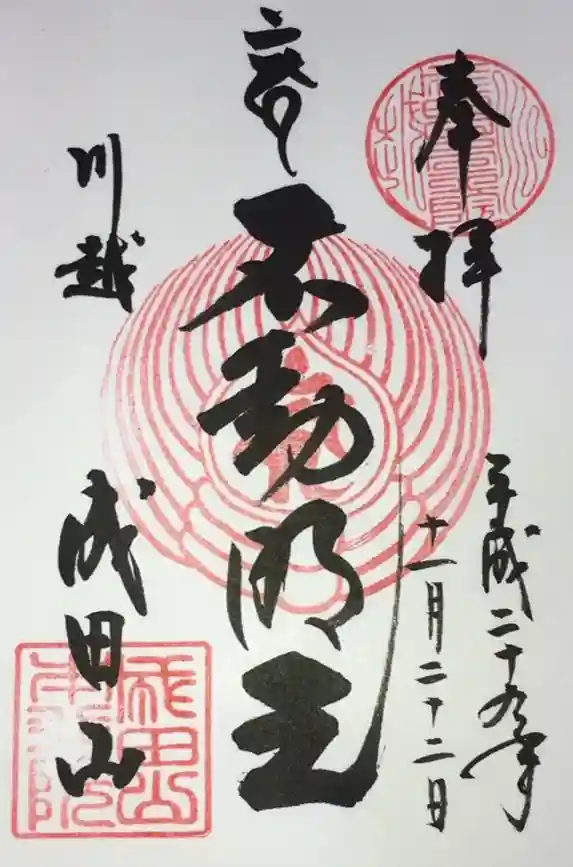 奉拝
平成二十九年
十一月二十二日
不動明王
川越
成田山